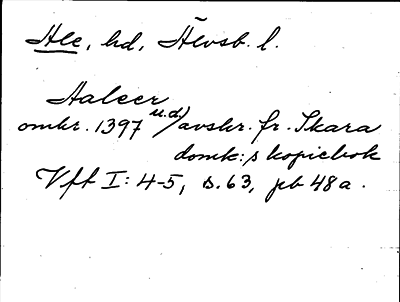 Ale, hd, Älvsb. l.
Aaleer
omkr. 1397 u.d./avskr. fr. Skara
domk:s kopiebok
Vft I: 4-5, s. 63, pb 48a.